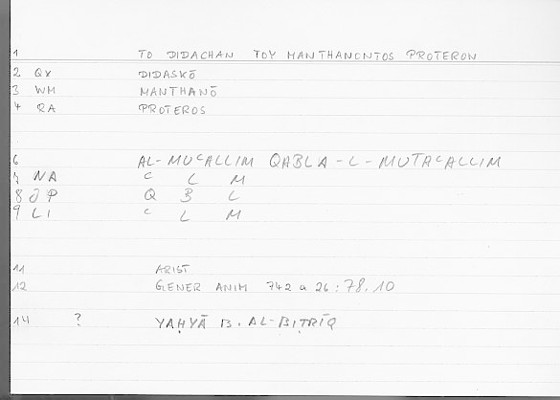 1 TO DIDACHAN TOY MANTHANONTOS PROTERON
2 QX DIDASKŌ
3 WM MANTHANŌ
4 RA PROTEROS
6 AL-MUCALLIM QABLA-L-MUTACALLIM
7 NA C L M
8 JP Q B L
9 LI C L M
11 ARIST
12 GENER ANIM 742 a 26 : 78.10
14 ? YAḤYĀ B. AL-BIṬRĪQ